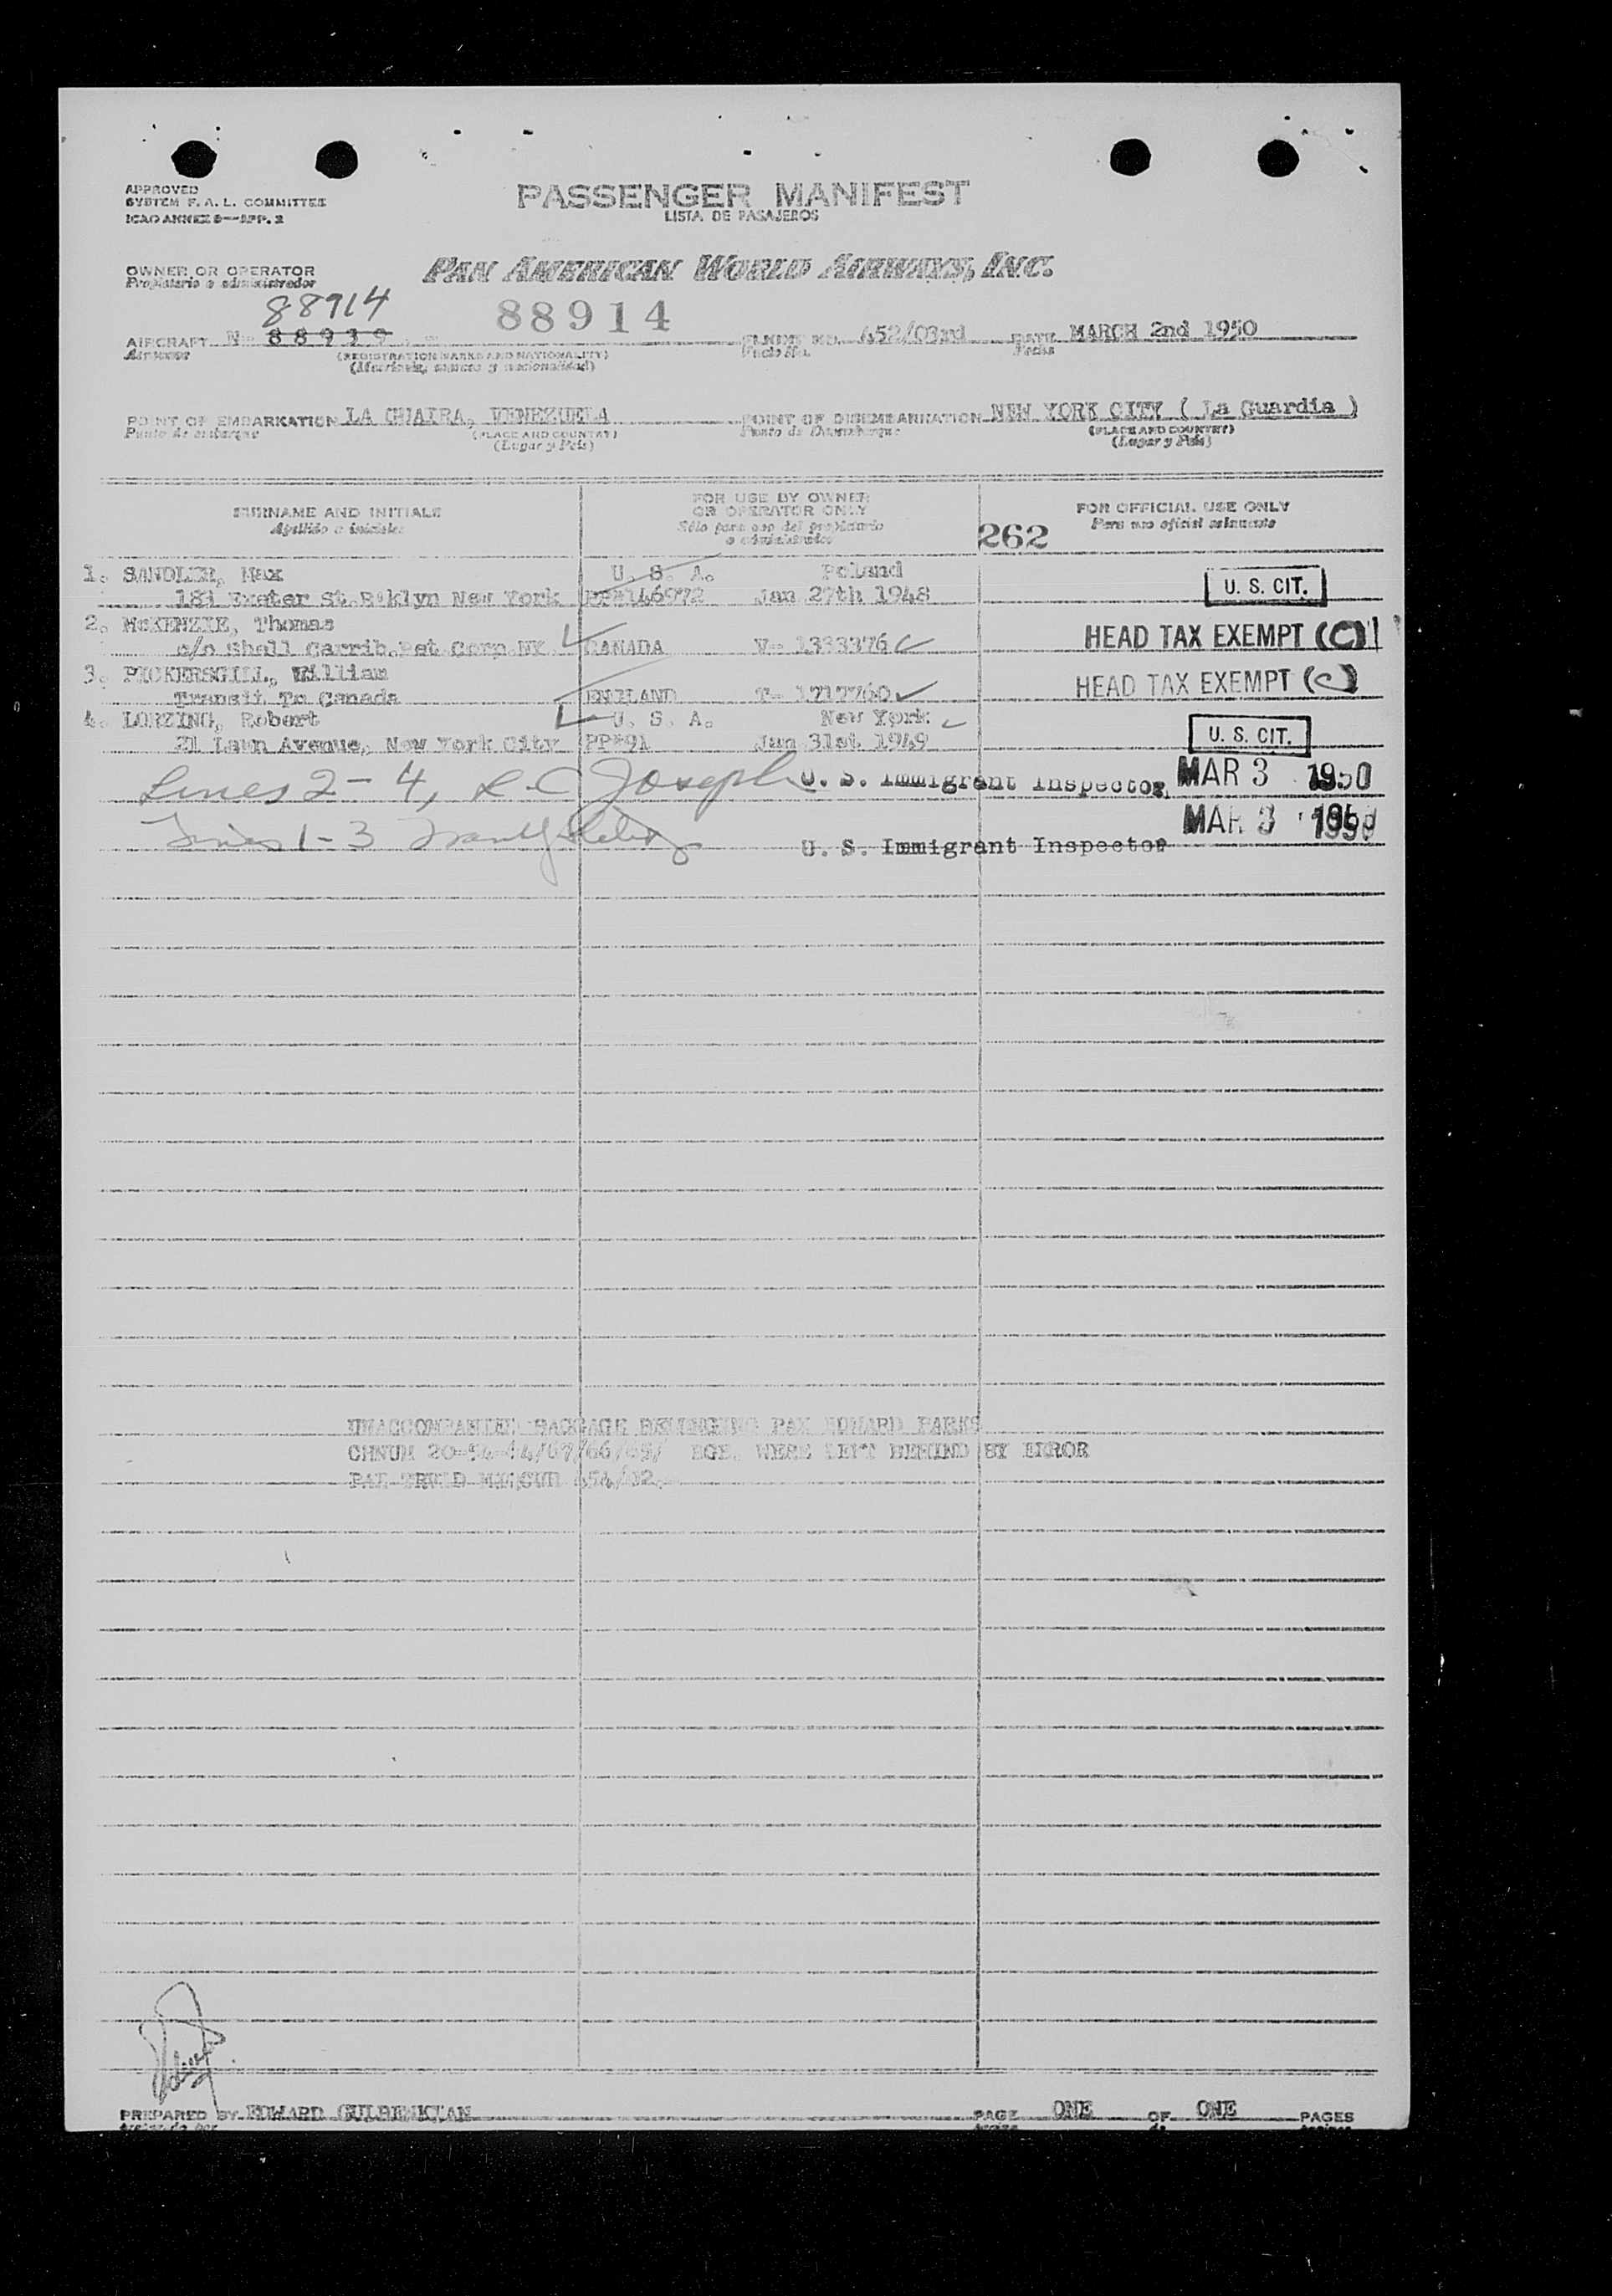 APPROVED
SYSTEM F. A. L. COMMITTEE
ICAO ANNEX 9—APP. 2
PASSENGER MANIFEST
LISTA DE PASAJEROS
OWNER OR OPERATOR
Propietario o administrador
PAN AMERICAN WORLD AIRWAYS, INC.
88914
88914
AIRCRAFT N- 88939 FLIGHT NO. 452/03rd DATE MARCH 2nd 1950
Aeronave (REGISTRATION MARKS AND NATIONALITY) Vuelo No. Fecha
(Matrícula, marcas y nacionalidad)
POINT OF EMBARKATION LA GUAIRA, VENEZUELA POINT OF DISEMBARKATION NEW YORK CITY ( La Guardia )
Punto de embarque (PLACE AND COUNTRY) Punto de Desembarque (PLACE AND COUNTRY)
(Lugar y País) (Lugar y País)
SURNAME AND INITIALS
Apellido e iniciales
FOR USE BY OWNER
OR OPERATOR ONLY
Sólo para uso del propietario
o administrador
FOR OFFICIAL USE ONLY
Para uso oficial solamente
262
1. SANDLER, Max U. S. A. Poland
Exeter St. B'klyn New York PP#146972 Jan 27th 1948 U. S. CIT.
2. McKENZIE, Thomas
c/o Shell Carrib. Pet Corp NY CANADA V- 1333376 HEAD TAX EXEMPT (C)
3. PICKERSGILL, William
Transit To Canada ENGLAND T- 1717760 HEAD TAX EXEMPT (C)
4. LORZING, Robert U. S. A. New York
21 Lawn Avenue, New York City PP#91 Jan 31st 1949 U. S. CIT.
Lines 2 - 4, R. C Joseph U. S. Immigrant Inspector MAR 3 1950
Lines 1 - 3 U. S. Immigrant Inspector MAR 3 1950
UNACCOMPANIED BAGGAGE BELONGING PAX EDWARD PARKS
BGE. WERE LEFT BEHIND BY ERROR
454/02
PREPARED BY EDWARD GULBENKIAN PAGE ONE OF ONE PAGES